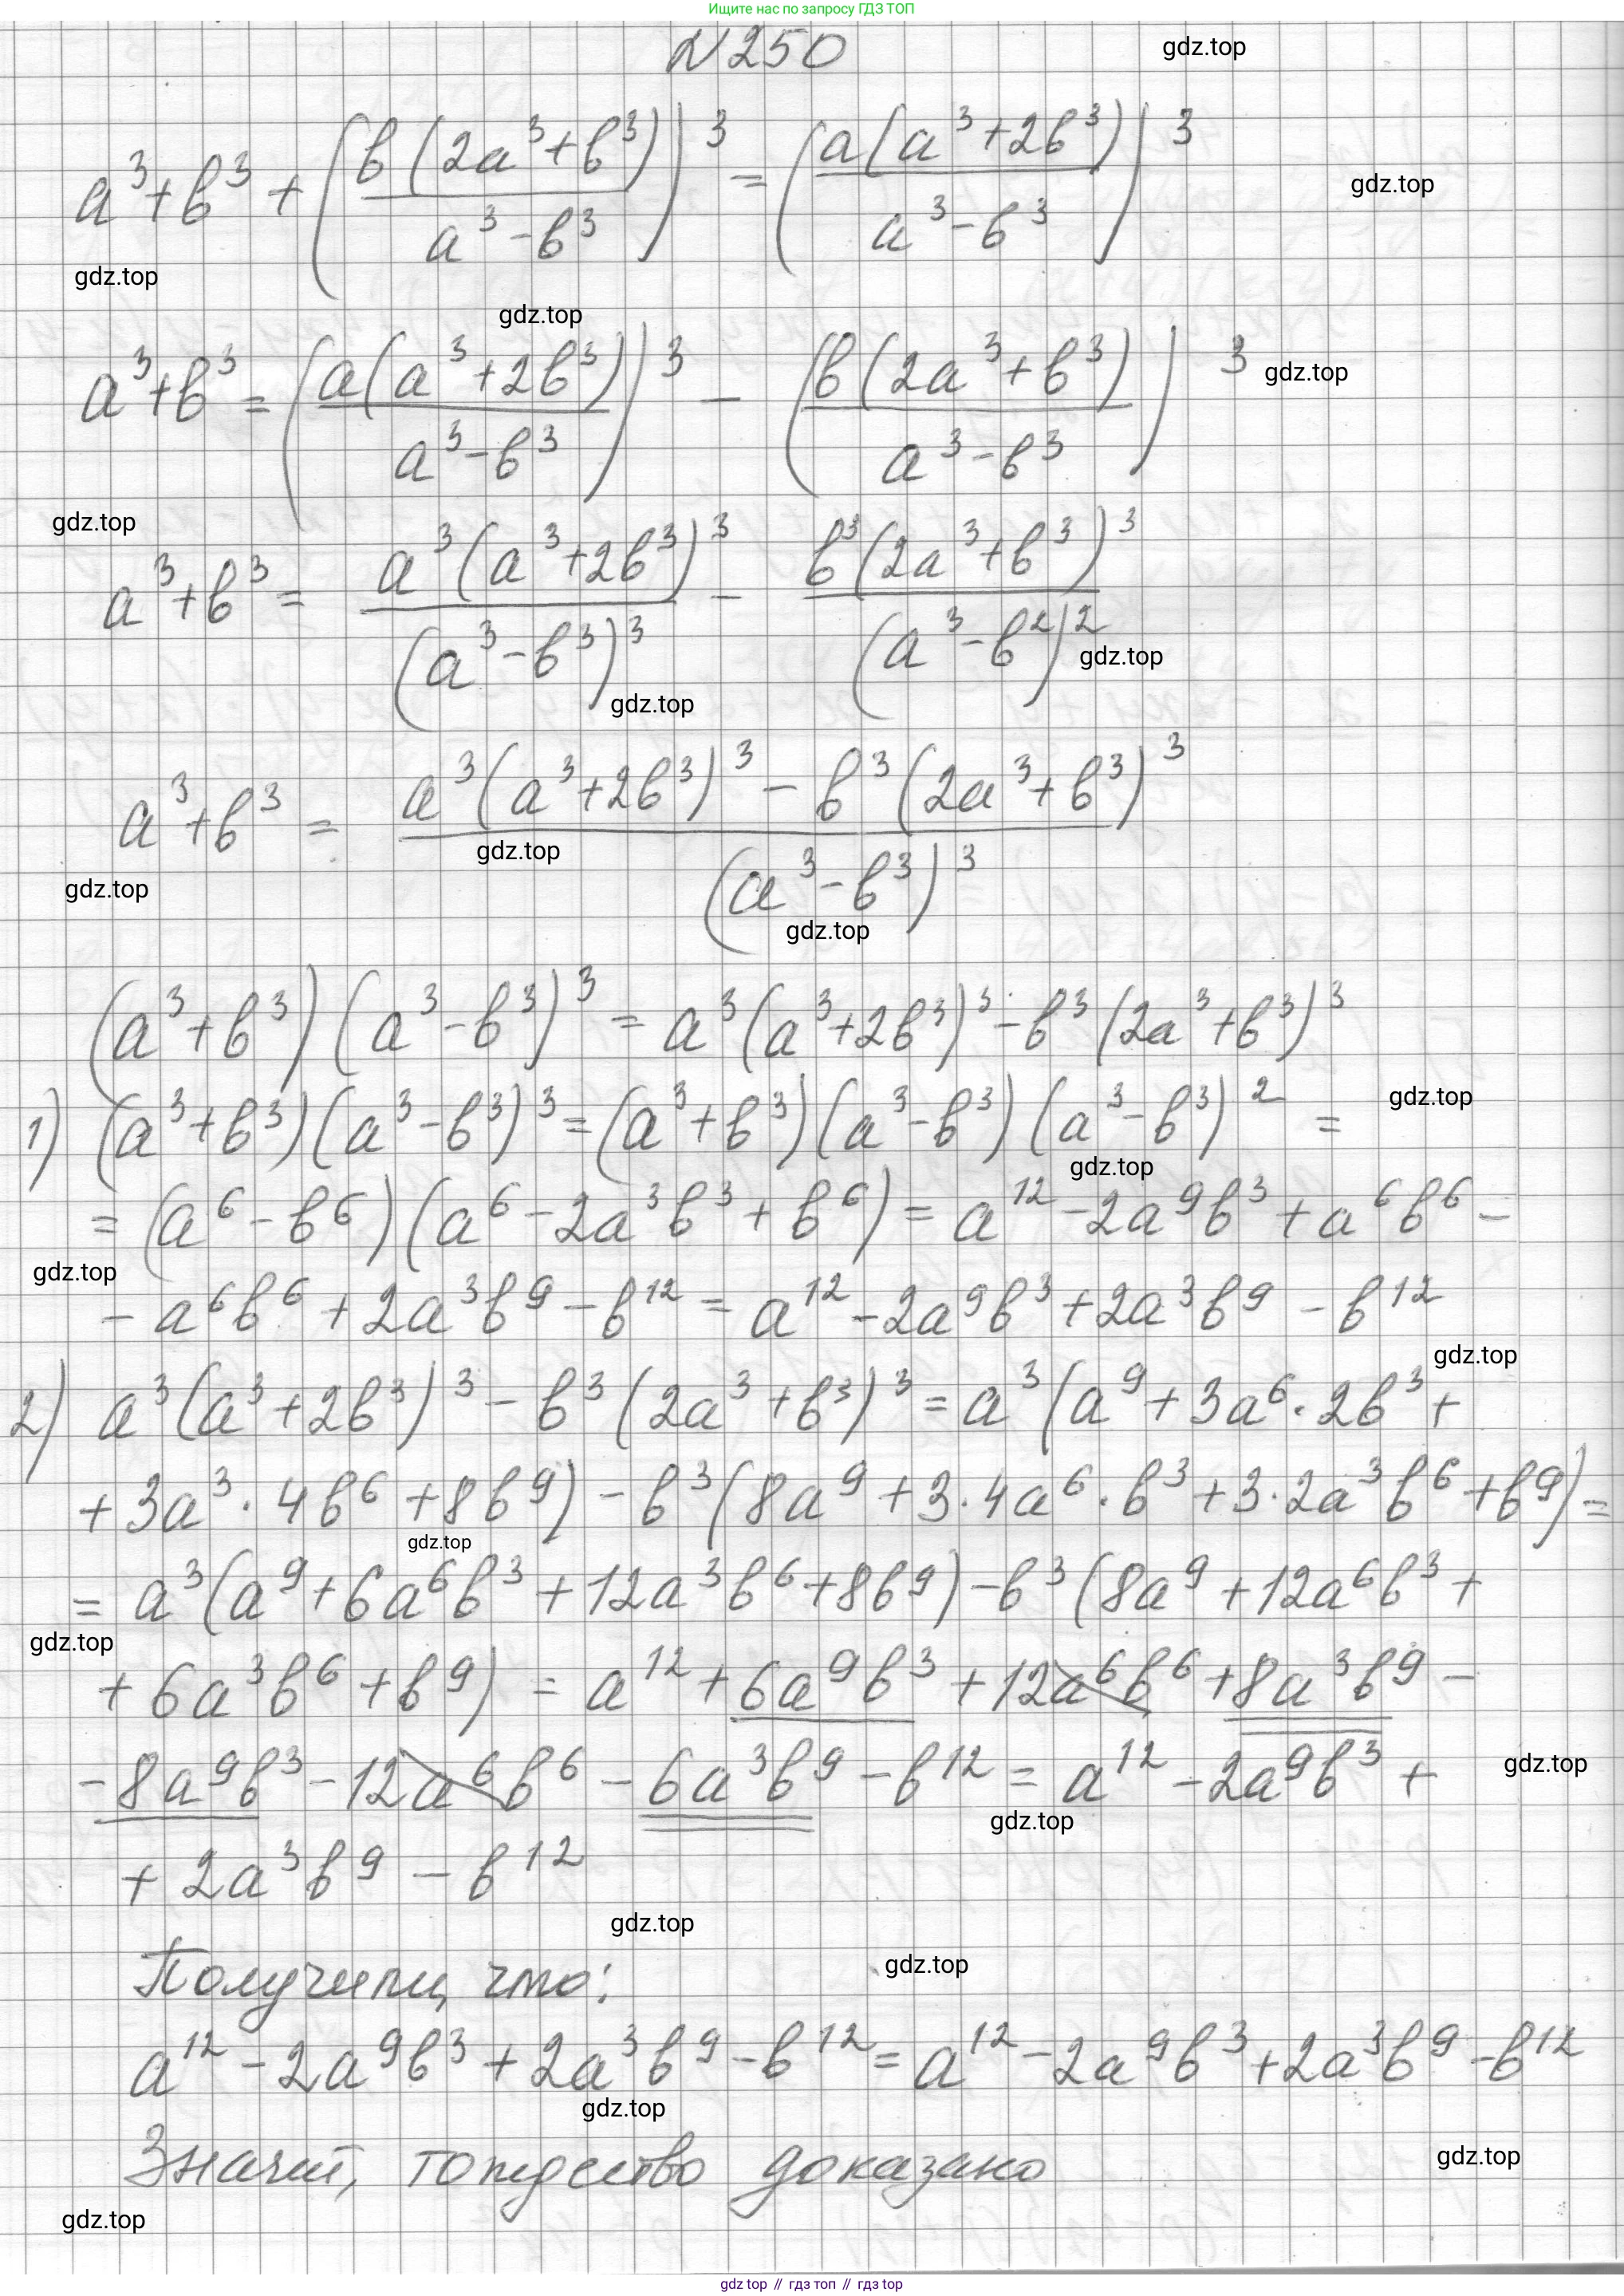 Ищите нас по запросу ГДЗ ТОП
N250
gdz.top
a³+b³+(b(2a³+b³)/a³-b³)³=(a(a³+2b³)/a³-b³)³
gdz.top
gdz.top
gdz.top
a³+b³=(a(a³+2b³)/a³-b³)³-(b(2a³+b³)/a³-b³)³
gdz.top
gdz.top
a³+b³=a³(a³+2b³)³/(a³-b³)³-b³(2a³+b³)³/(a³-b²)²
gdz.top
gdz.top
a³+b³=a³(a³+2b³)³-b³(2a³+b³)³/(a³-b³)³
gdz.top
gdz.top
gdz.top
(a³+b³)(a³-b³)³=a³(a³+2b³)³-b³(2a³+b³)³
1) (a³+b³)(a³-b³)³=(a³+b³)(a³-b³)(a³-b³)²=
gdz.top
gdz.top
=(a⁶-b⁶)(a⁶-2a³b³+b⁶)=a¹²-2a⁹b³+a⁶b⁶-
gdz.top
-a⁶b⁶+2a³b⁹-b¹²=a¹²-2a⁹b³+2a³b⁹-b¹²
gdz.top
2) a³(a³+2b³)³-b³(2a³+b³)³=a³(a⁹+3a⁶·2b³+
+3a³·4b⁶+8b⁹)-b³(8a⁹+3·4a⁶·b³+3·2a³b⁶+b⁹)=
gdz.top
=a³(a⁹+6a⁶b³+12a³b⁶+8b⁹)-b³(8a⁹+12a⁶b³+
gdz.top
+6a³b⁶+b⁹)=a¹²+6a⁹b³+12a⁶b⁶+8a³b⁹-
-8a⁹b³-12a⁶b⁶-6a³b⁹-b¹²=a¹²-2a⁹b³+
gdz.top
gdz.top
+2a³b⁹-b¹²
gdz.top
gdz.top
Получили, что:
a¹²-2a⁹b³+2a³b⁹-b¹²=a¹²-2a⁹b³+2a³b⁹-b¹²
gdz.top
Значит, тождество доказано
gdz.top
gdz.top
gdz top // гдз топ // gdz top